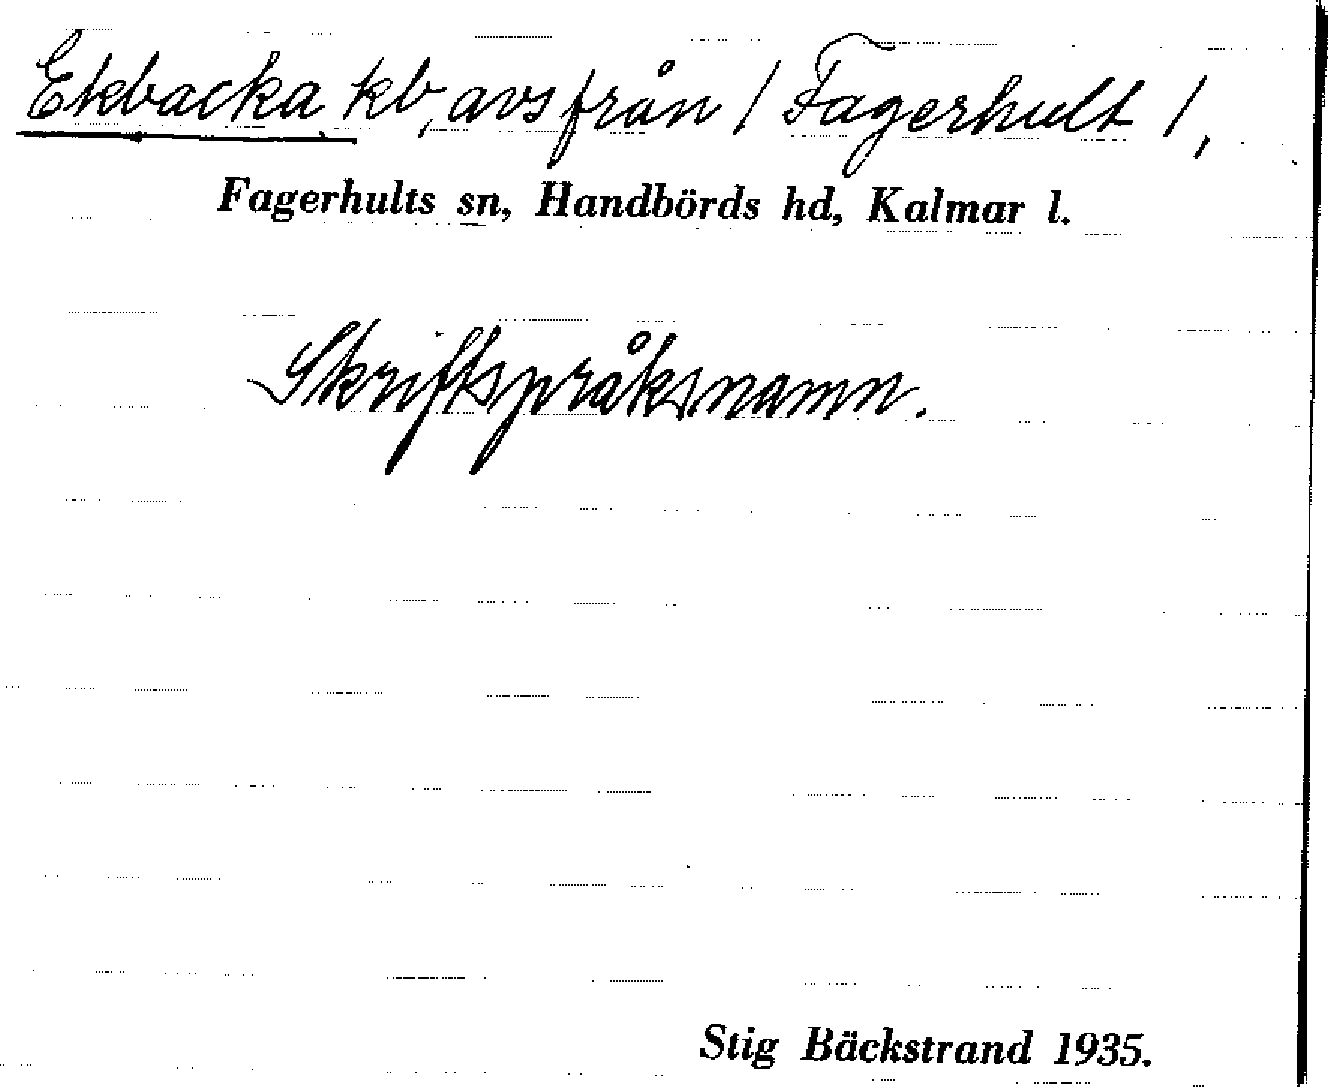 Ekbacka kb, avs från / Fagerhult /,
Fagerhults sn, Handbörds hd, Kalmar l.
Skriftspråksnamn.
Stig Bäckstrand 1935.